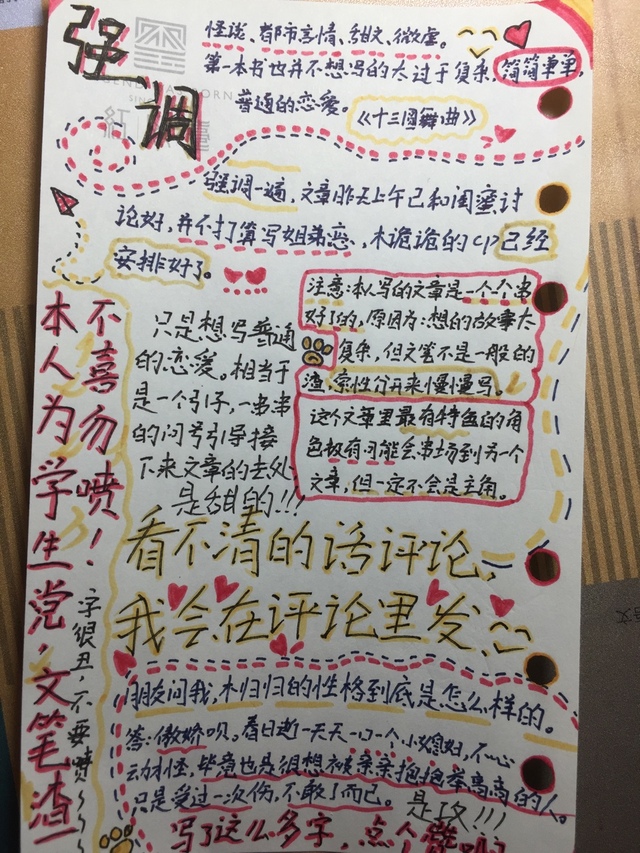 强调
怪谈、都市言情、甜文、微虐。
第一本书也并不想写的太过于复杂,简简单单,
普通的恋爱。《十三圆舞曲》
强调一遍,文章昨天上午已和闺蜜讨
论好,并不打算写姐弟恋,木诡诡的cp已经
安排好了。
注意:本人写的文章是一个个串
好了的,原因为:想的故事太
复杂,但文笔不是一般的
渣,索性分开来慢慢写。
这个文章里最有特色的角
色极有可能会串场到另一个
文章,但一定不会是主角。
只是想写普通
的恋爱。相当于
是一个引子,一串串
的问号引导接
下来文章的去处
是甜的!!!
不喜勿喷!
本人为学生党,文笔渣
字很丑,不要喷~~~
看不清的话评论,
我会在评论里发、
朋友问我,木归归的性格到底是怎么样的。
答:傲娇呗。看日逝一天天一口一个小媳妇,不心
动才怪,毕竟也是很想被亲亲抱抱举高高的人。
只是受过一次伤,不敢了而已。是攻!!!
写了这么多字,点个